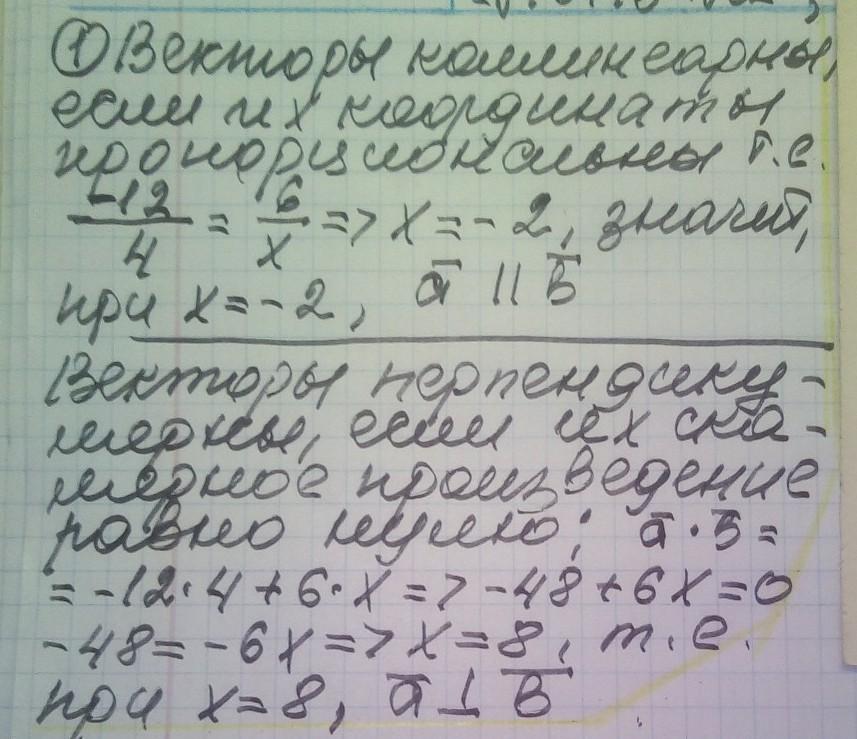 ① Векторы коллинеарны,
если их координаты
пропорциональны т.е.
-12/4 = 6/x => x = -2, значит,
при x = -2, a̅ || b̅
Векторы перпендику-
лярны, если их ска-
лярное произведение
равно нулю: a̅ · b̅ =
= -12·4 + 6·x => -48 + 6x = 0
-48 = -6x => x = 8, т.е.
при x = 8, a̅ ⊥ b̅